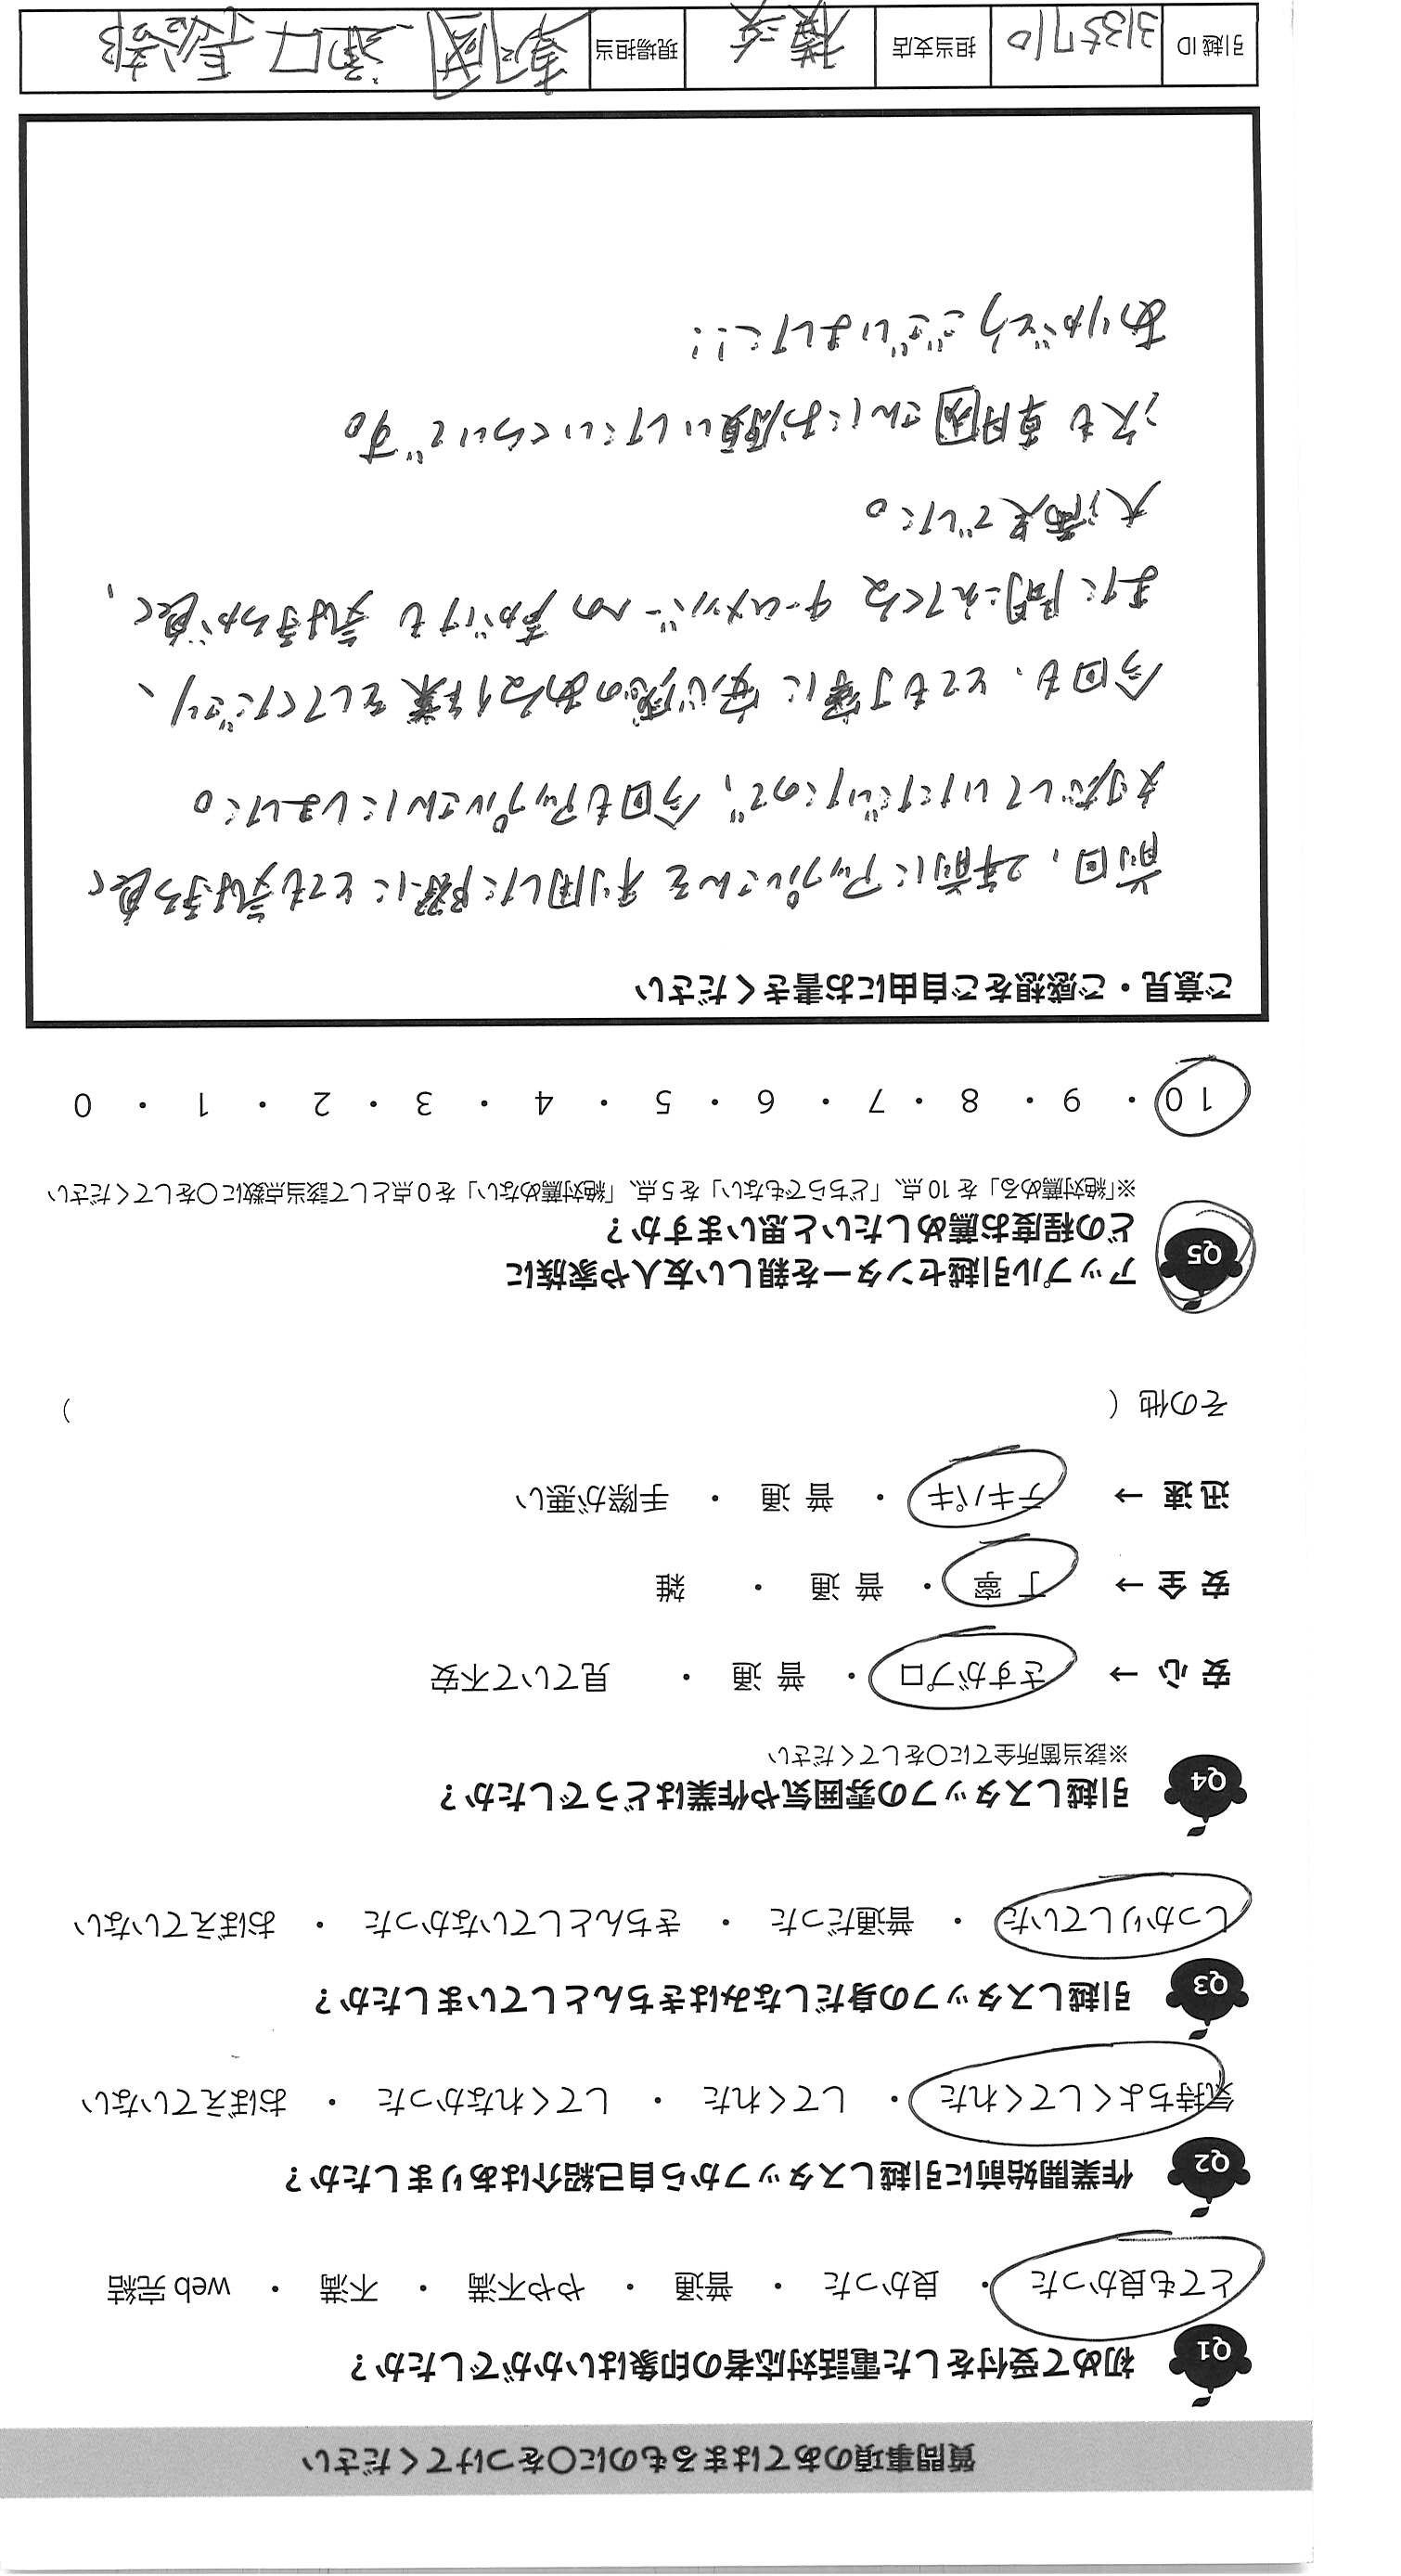 質問事項のあてはまるものに〇をつけてください
Q1 初めて受付をした電話対応者の印象はいかがでしたか？
とても良かった ・ 良かった ・ 普通 ・ やや不満 ・ 不満 ・ web 完結
Q2 作業開始前に引越しスタッフから自己紹介はありましたか？
気持ちよくしてくれた ・ してくれた ・ してくれなかった ・ おぼえていない
Q3 引越しスタッフの身だしなみはきちんとしていましたか？
しっかりしていた ・ 普通だった ・ きちんとしていなかった ・ おぼえていない
Q4 引越しスタッフの雰囲気や作業はどうでしたか？
※該当箇所全てに〇をしてください
安 心 → さすがプロ ・ 普 通 ・ 見ていて不安
安 全 → 丁 寧 ・ 普 通 ・ 雑
迅 速 → テキパキ ・ 普 通 ・ 手際が悪い
その他（ ）
Q5 アップル引越センターを親しい友人や家族に
どの程度お薦めしたいと思いますか？
※「絶対薦める」を 10 点、「どちらでもない」を 5 点、「絶対薦めない」を 0 点として該当点数に〇をしてください
10 ・ 9 ・ 8 ・ 7 ・ 6 ・ 5 ・ 4 ・ 3 ・ 2 ・ 1 ・ 0
ご意見・ご感想をご自由にお書きください
前回、2年前にアップルさんを利用した際にとても気持ち良く
対応していただいたので、今回もアップルさんにしました。
今回も、とても丁寧に安心感のある作業をしてくださり、
また聞こえてくるチームメンバーへの声がけも気持ちが良く、
大満足でした。
次も 国さんにお願いしたいくらいです。
ありがとうございました!!
引越 ID 3135710 担当支店 横浜 現場担当 國 溝口 長谷部